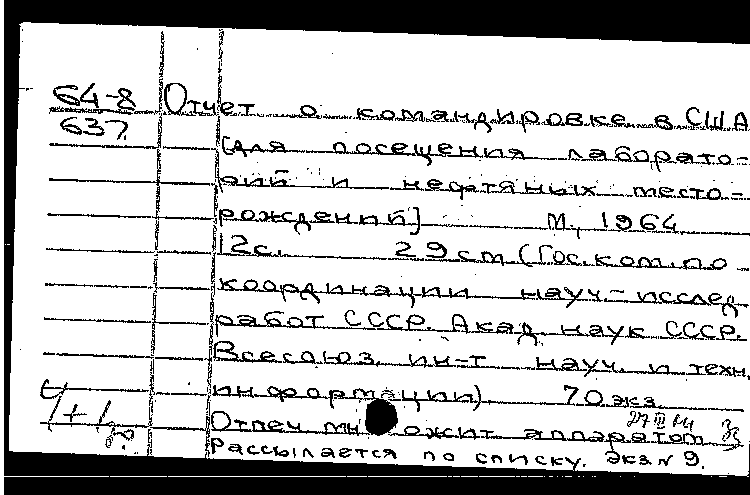 64-8 Отчет о командировке в США
637 [для посещения лаборато-
рий и нефтяных место-
рождений] М., 1964
12с. 29 см (Гос. ком. по
координации науч.-исслед.
работ СССР. Акад. наук СССР.
Всесоюз. ин-т науч. и техн.
информации). 70 экз.
1+1
27 III 64
Отпеч множит аппаратом
Рассылается по списку. Экз. № 9.